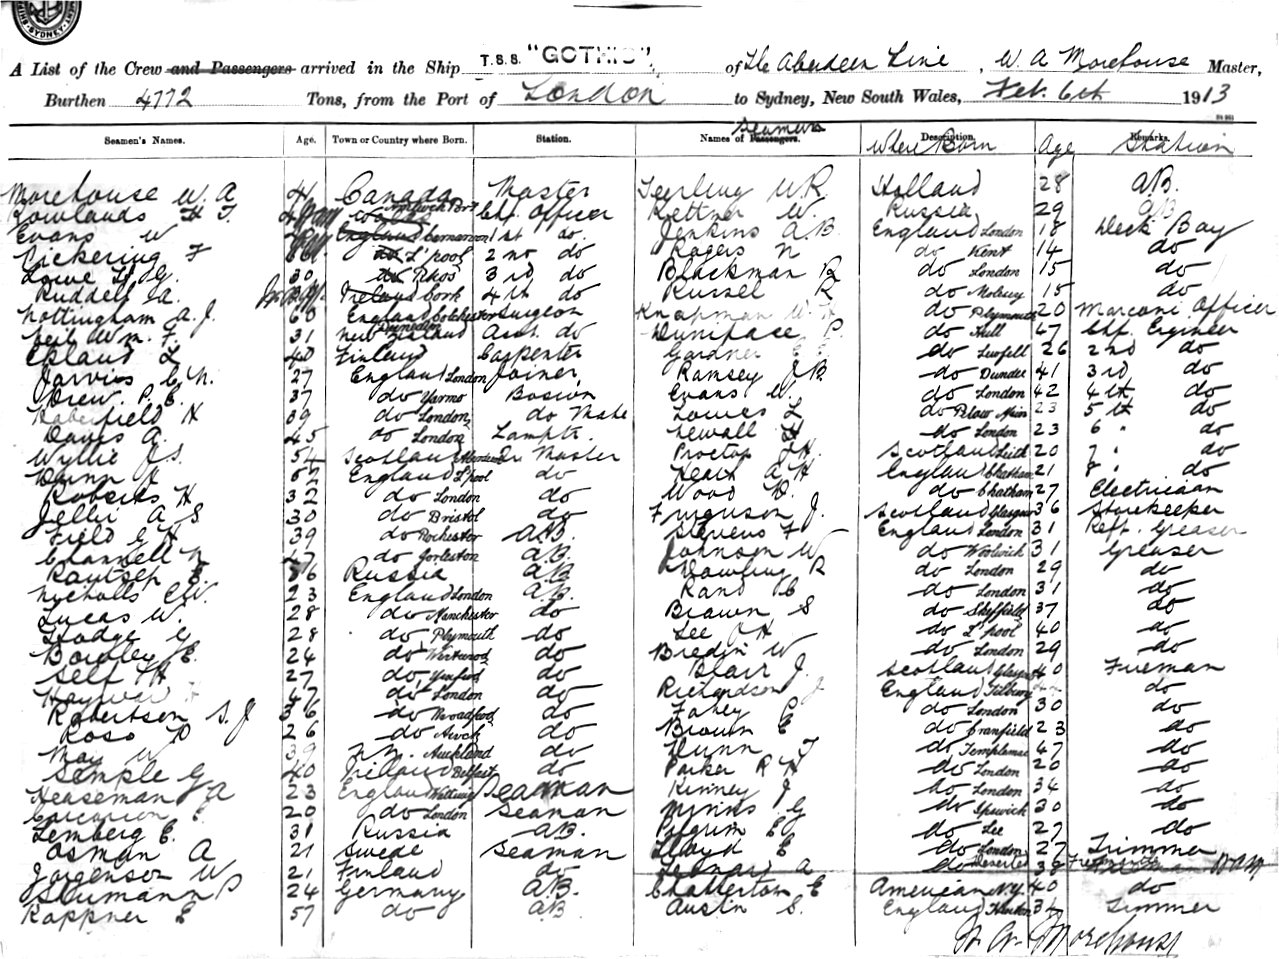 SYDNEY
T.S.S. "GOTHIC",
A List of the Crew and Passengers arrived in the Ship of The Aberdeen Line, W. A Morehouse Master,
Burthen 4772 Tons, from the Port of London to Sydney, New South Wales, Feb. 6th 1913
Seamen's Names. Age. Town or Country where Born. Station. Names of Passengers. Seamens Description. Where Born Age Remarks. Station
Morehouse W. A 41 Canada Master Teerling W R. Holland 28 A.B.
Rowlands H T. Wales Chf. Officer Kettner W. Russia 29 A.B
Evans W England Carnarvon 1st do. Jenkins A. B. England London 18 Deck Boy
Pickering F do L'pool 2nd do Rogers N do Kent 14 do
Lowe H. G. 30 do 3rd do Blackman R do London 15 do
Ruddell A. Ireland Cork 4th do Russel R do 15 do
Nottingham A. J. 60 England Colchester Surgeon Knapman W. H do Plymouth 20 Marconi Officer
Wm. F. 31 New Zealand Dunedin Asst. do Duniface P. do Hull 47 Chf. Engineer
Ekland L 40 Finland Carpenter Gardner do 26 2nd do
Jarvis C. N. 27 England London Joiner Ramsey J B do Dundee 41 3rd do
Drew. P. C. 37 do Yarmo Bosun Evans W. do London 42 4th do
Haberfield H 39 do London do Mate Lowes L do 23 5th do
Davis A. 45 do London Lamptr. Newall H do London 23 6 " do
Wyllie J. S. 54 Scotland Aberdeen Qr Master Proctor J H. Scotland Leith 20 7 " do
Dunn H 52 England L'pool do Hearn A H England Chatham 21 8 " do
Roberts H 32 do London do Wood D. do Chatham 27 Electrician
Jellie A S 30 do Bristol do Ferguson J. Scotland Glasgow 36 Storekeeper
Field G H 39 do Rochester A.B. Stevens F England London 31 Reft. Greaser
Channell N 47 do Gorleston A.B. Johnson W do Woolwich 31 Greaser
36 Russia A.B Dowling R do London 29 do
Nicholls C W. 23 England London A.B. Rand C do London 31 do
Lucas W. 28 do Manchester do Brown S do Sheffield 37 do
Hodge G 28 do Plymouth do Lee J H do L'pool 40 do
Bowley E. 24 do do Bredin W do London 29 do
Self T H 27 do do Blair J. Scotland Glasgow 40 Fireman
47 do London do Richardson J England Tilbury do
Robertson S. J 36 do do Fahey P do London 30 do
Ross D 26 do do Brown E do Cranfield 23 do
May W 39 N. Z. Auckland do Dunn T do 47 do
Semple G 40 Ireland Belfast do Parker R H do London 20 do
Heaseman G A 23 England Seaman Kinney J do London 34 do
20 do London Seaman Mynns G do Ipswich 30 do
Lemberg E. 31 Russia A.B. Pilgrim E G do Lee 27 do
Osman A 21 Swede Seaman Lloyd E do London 27 Trimmer
Jorgenson W 21 Finland do Leonard A do Deserted 38 Fireman
24 Germany A.B. Chatterton E American N.Y. 40 do
Kappner E 57 do A.B Austin S. England 34 Trimmer
W. A. Morehouse